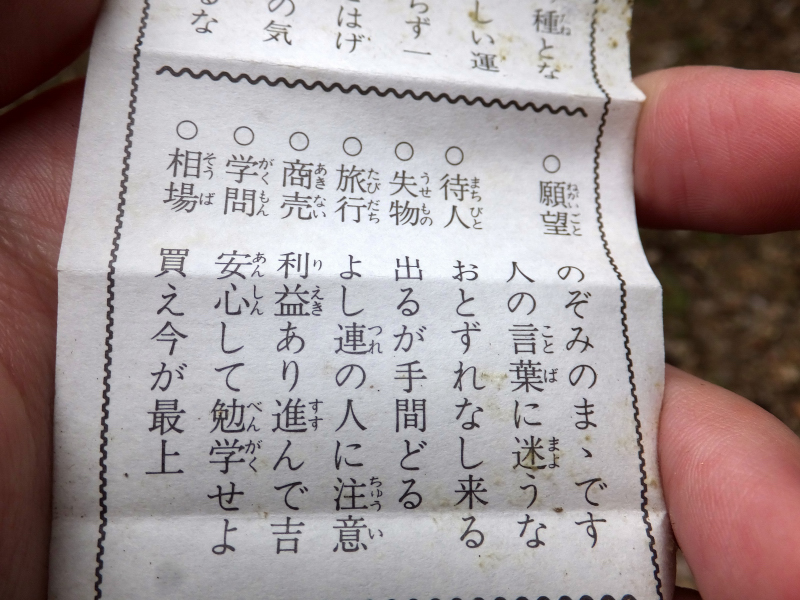 種とな
しい運
らず一
とはげ
の気
るな
○願望 のぞみのまゝです
人の言葉に迷うな
○待人 おとずれなし来る
○失物 出るが手間どる
○旅行 よし連の人に注意
○商売 利益あり進んで吉
○学問 安心して勉学せよ
○相場 買え今が最上